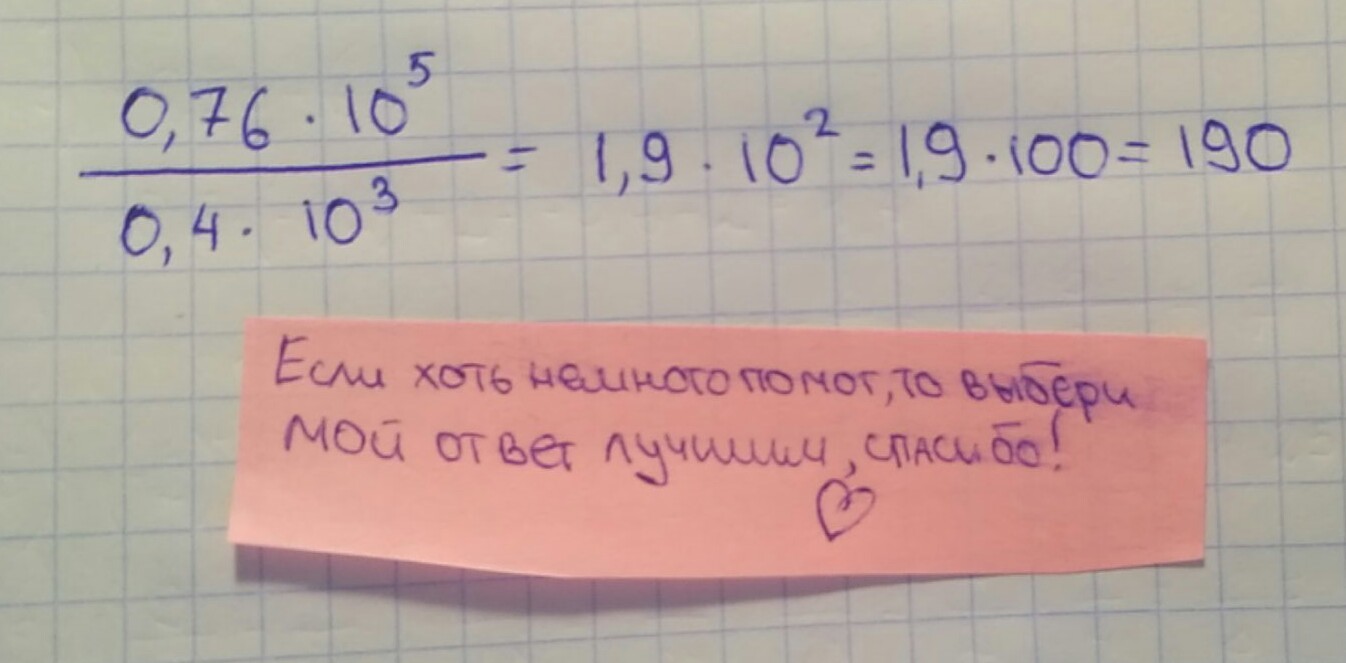 0,76 · 10⁵ / 0,4 · 10³ = 1,9 · 10² = 1,9 · 100 = 190
Если хоть немного помог, то выбери
мой ответ лучшим, спасибо!